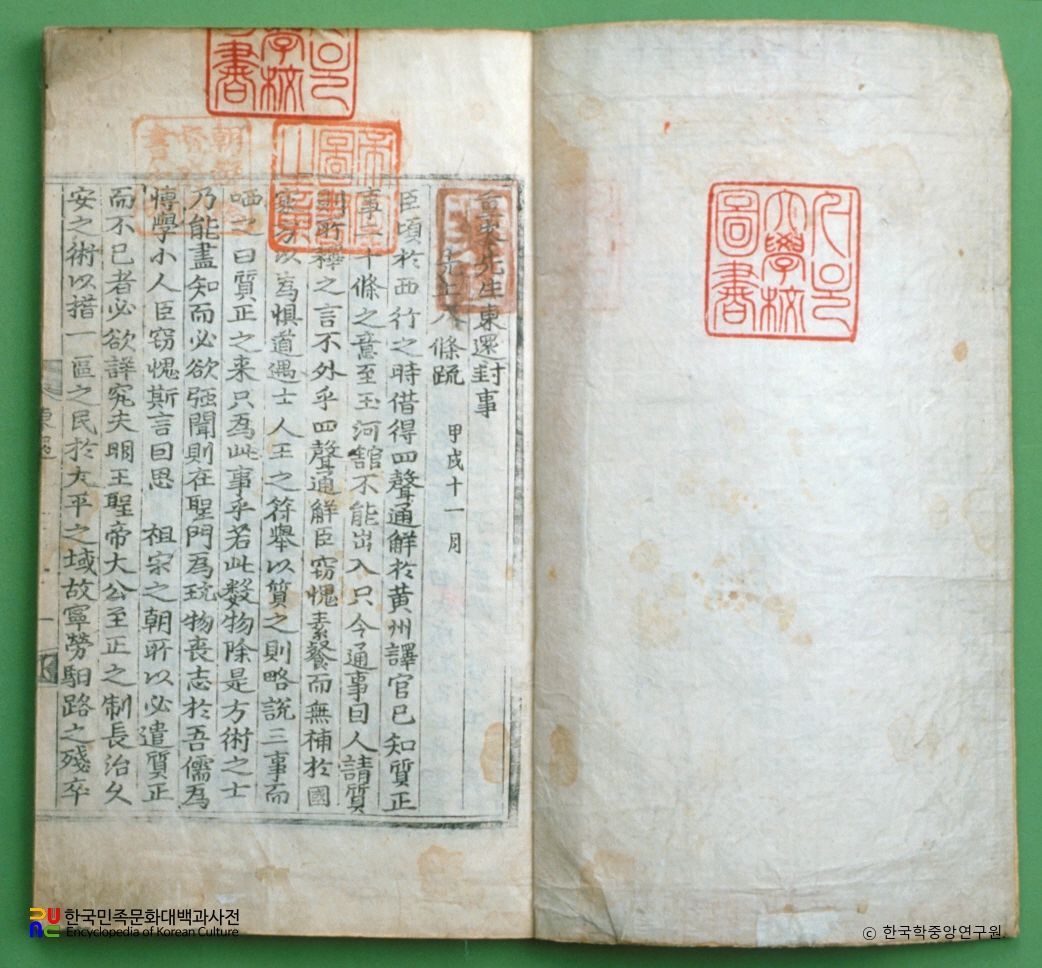 서울
大學校
圖書
先生東還封事
先上八條疏 甲戌十一月
臣頃於西行之時借得四聲通解於黃州譯官已知質正
事 十條之意至玉河舘不能出入只今通事曰人請質
則所釋之言不外乎四聲通解臣竊愧素餐而無補於國
方以爲惧道遇士人王之符擧以質之則略說三事而
哂之曰質正之来只爲此事乎若此数物除是方術之士
乃能盡知而必欲强聞則在聖門爲玩物喪志於吾儒爲
博學小人臣竊愧斯言回思 祖宗之朝所以必遣質正
而不已者必欲詳究夫明王聖帝大公至正之制長治久
安之術以措一區之民於大平之域故寧勞馹路之殘卒
東還
한국민족문화대백과사전
Encyclopedia of Korean Culture
© 한국학중앙연구원